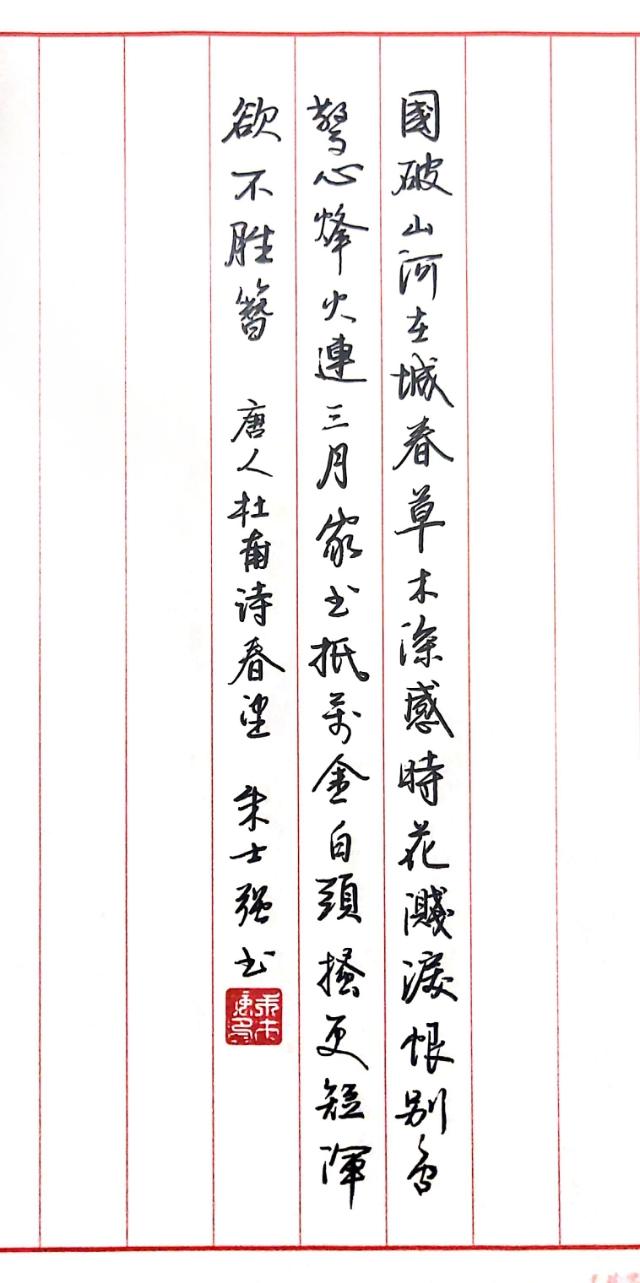 國破山河在城春草木深感時花濺淚恨别鸟
驚心烽火連三月家书抵万金白頭搔更短渾
欲不胜簪 唐人杜甫诗春望 朱士强书